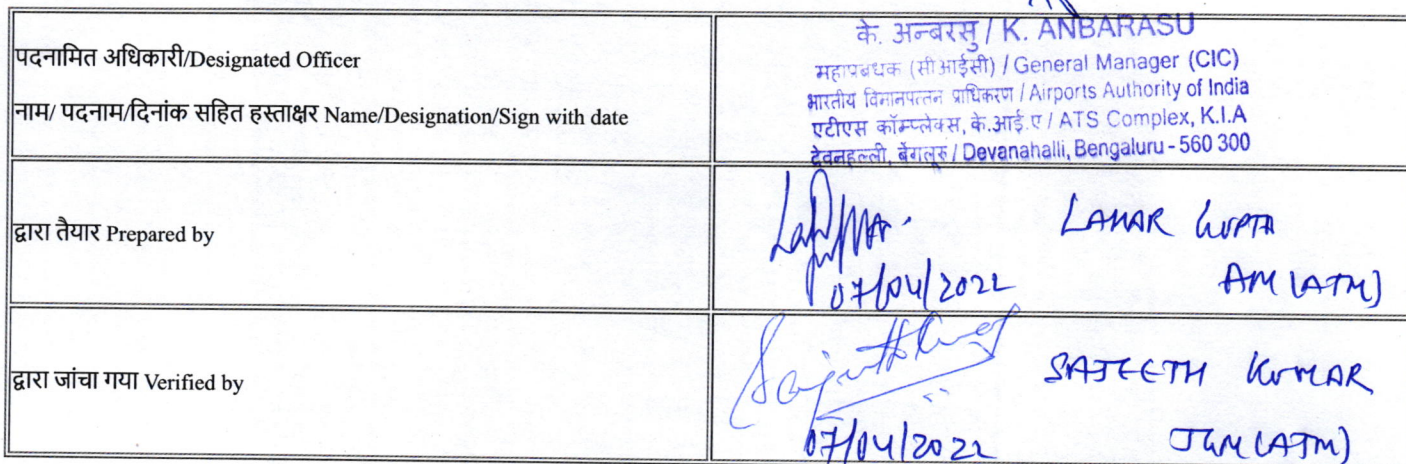 पदनामित अधिकारी/Designated Officer
नाम/ पदनाम/दिनांक सहित हस्ताक्षर Name/Designation/Sign with date
के. अन्बरसु / K. ANBARASU
महाप्रबंधक (सीआईसी) / General Manager (CIC)
भारतीय विमानपत्तन प्राधिकरण / Airports Authority of India
एटीएस कॉम्प्लेक्स, के.आई.ए / ATS Complex, K.I.A
देवनहल्ली, बेंगलूरु / Devanahalli, Bengaluru - 560 300
द्वारा तैयार Prepared by
LAHAR GUPTA
07/04/2022 AM (ATM)
द्वारा जांचा गया Verified by
SAJEETH KUMAR
07/04/2022 JGM (ATM)